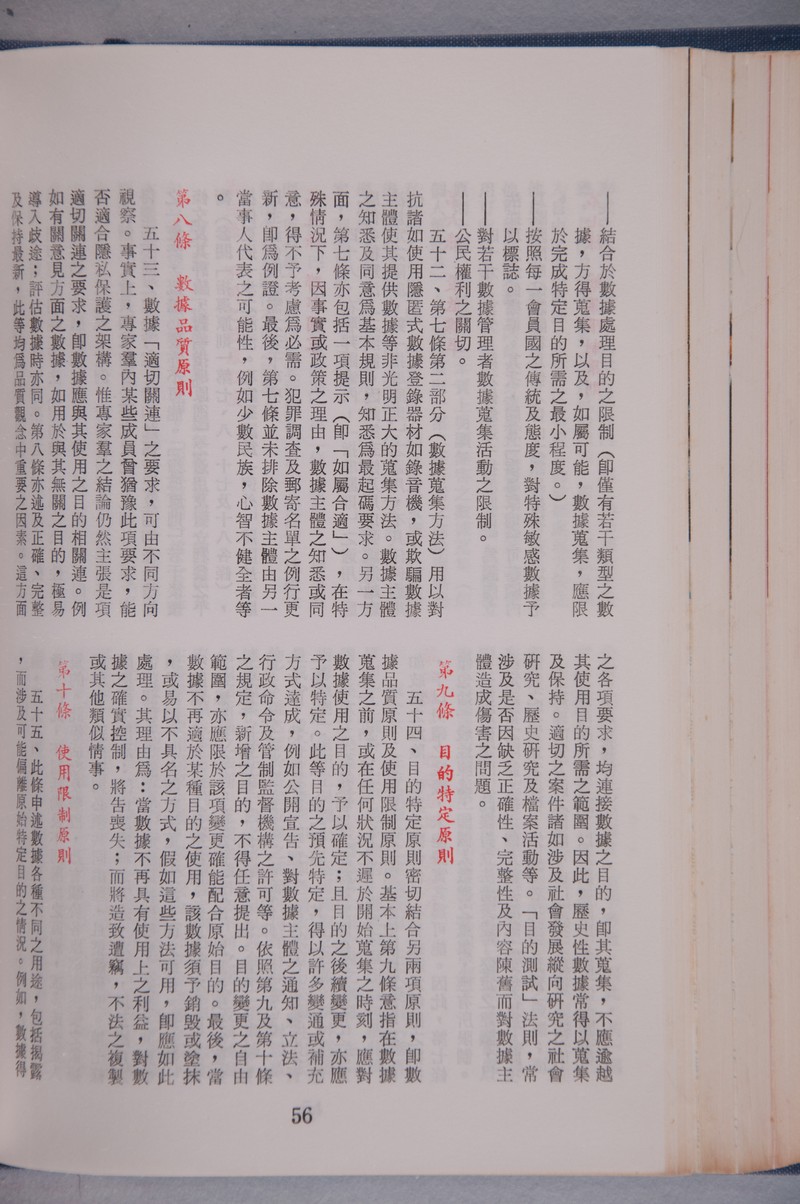 ──結合於數據處理目的之限制（卽僅有若干類型之數
據，方得蒐集，以及，如屬可能，數據蒐集，應限
於完成特定目的所需之最小程度。）
──按照每一會員國之傳統及態度，對特殊敏感數據予
以標誌。
──對若干數據管理者數據蒐集活動之限制。
──公民權利之關切。
五十二、第七條第二部分（數據蒐集方法）用以對
抗諸如使用隱匿式數據登錄器材如錄音機，或欺騙數據
主體使其提供數據等非光明正大的蒐集方法。數據主體
之知悉及同意爲基本規則，知悉爲最起碼要求。另一方
面，第七條亦包括一項提示（卽「如屬合適」），在特
殊情況下，因事實或政策之理由，數據主體之知悉或同
意，得不予考慮爲必需。犯罪調查及郵寄名單之例行更
新，卽爲例證。最後，第七條並未排除數據主體由另一
當事人代表之可能性，例如少數民族，心智不健全者等
。
第八條　數據品質原則
五十三、數據「適切關連」之要求，可由不同方向
視察。事實上，專家羣內某些成員曾猶豫此項要求，能
否適合隱私保護之架構。惟專家羣之結論仍然主張是項
適切關連之要求，卽數據應與其使用之目的相關連。例
如有關意見方面之數據，如用於與其無關之目的，極易
導入歧途；評估數據時亦同。第八條亦述及正確、完整
及保持最新，此等均爲品質觀念中重要之因素。這方面
之各項要求，均連接數據之目的，卽其蒐集，不應逾越
其使用目的所需之範圍。因此，歷史性數據常得以蒐集
及保持。適切之案件諸如涉及社會發展縱向硏究之社會
硏究、歷史硏究及檔案活動等。「目的測試」法則，常
涉及是否因缺乏正確性、完整性及內容陳舊而對數據主
體造成傷害之問題。
第九條　目的特定原則
五十四、目的特定原則密切結合另兩項原則，卽數
據品質原則及使用限制原則。基本上第九條意指在數據
蒐集之前，或在任何狀況不遲於開始蒐集之時刻，應對
數據使用之目的，予以確定；且目的之後續變更，亦應
予以特定。此等目的之預先特定，得以許多變通或補充
方式達成，例如公開宣告、對數據主體之通知、立法、
行政命令及管制監督機構之許可等。依照第九及第十條
之規定，新增之目的，不得任意提出。目的變更之自由
範圍，亦應限於該項變更確能配合原始目的。最後，當
數據不再適於某種目的之使用，該數據須予銷毀或塗抹
，或易以不具名之方式，假如這些方法可用，卽應如此
處理。其理由爲：當數據不再具有使用上之利益，對數
據之確實控制，將告喪失；而將造致遭竊，不法之複製
或其他類似情事。
第十條　使用限制原則
五十五、此條申述數據各種不同之用途，包括揭露
，而涉及可能偏離原始特定目的之情況。例如，數據得
56